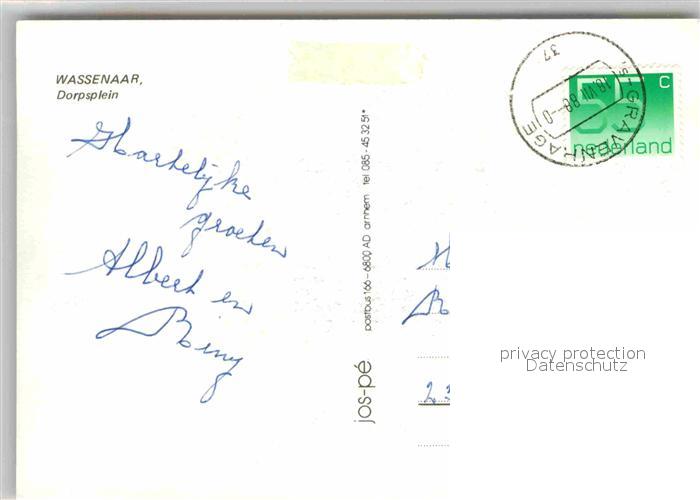 WASSENAAR,
Dorpsplein
Hartelijke
groeten
Albert en
Riny
jos-pé postbus 166 – 6800 AD arnhem tel 085 - 45 32 51*
's-GRAVENHAGE
37
18.VII.88
55 C
nederland
privacy protection
Datenschutz